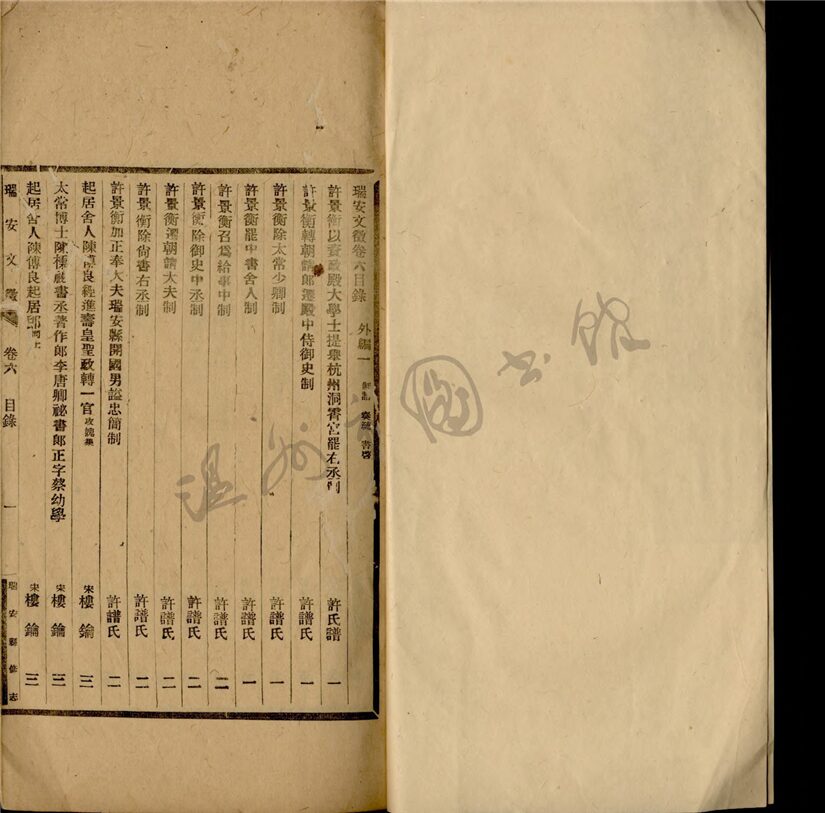 瑞安文徵卷六目錄 外編一 制誥 奏疏 書啓
許景衡以資政殿大學士提舉杭州洞霄宮罷右丞制 許氏譜 一
許景衡轉朝請郎遷殿中侍御史制 許譜氏 一
許景衡除太常少卿制 許譜氏 一
許景衡罷中書舍人制 許譜氏 一
許景衡召爲給事中制 許譜氏 二
許景衡除御史中丞制 許譜氏 二
許景衡遷朝請大夫制 許譜氏 二
許景衡除尚書右丞制 許譜氏 二
許景衡加正奉大夫瑞安縣開國男謚忠簡制 許譜氏 二
起居舍人陳傅良經進壽皇聖政轉一官 攻媿集 宋樓鑰 三
太常博士陳棅祕書丞著作郎李唐卿祕書郎正字蔡幼學 宋樓鑰 三
起居舍人陳傅良起居郎 同上 宋樓鑰 三
瑞安文徵 卷六 目錄 一 瑞安縣修志
溫州 圖書館